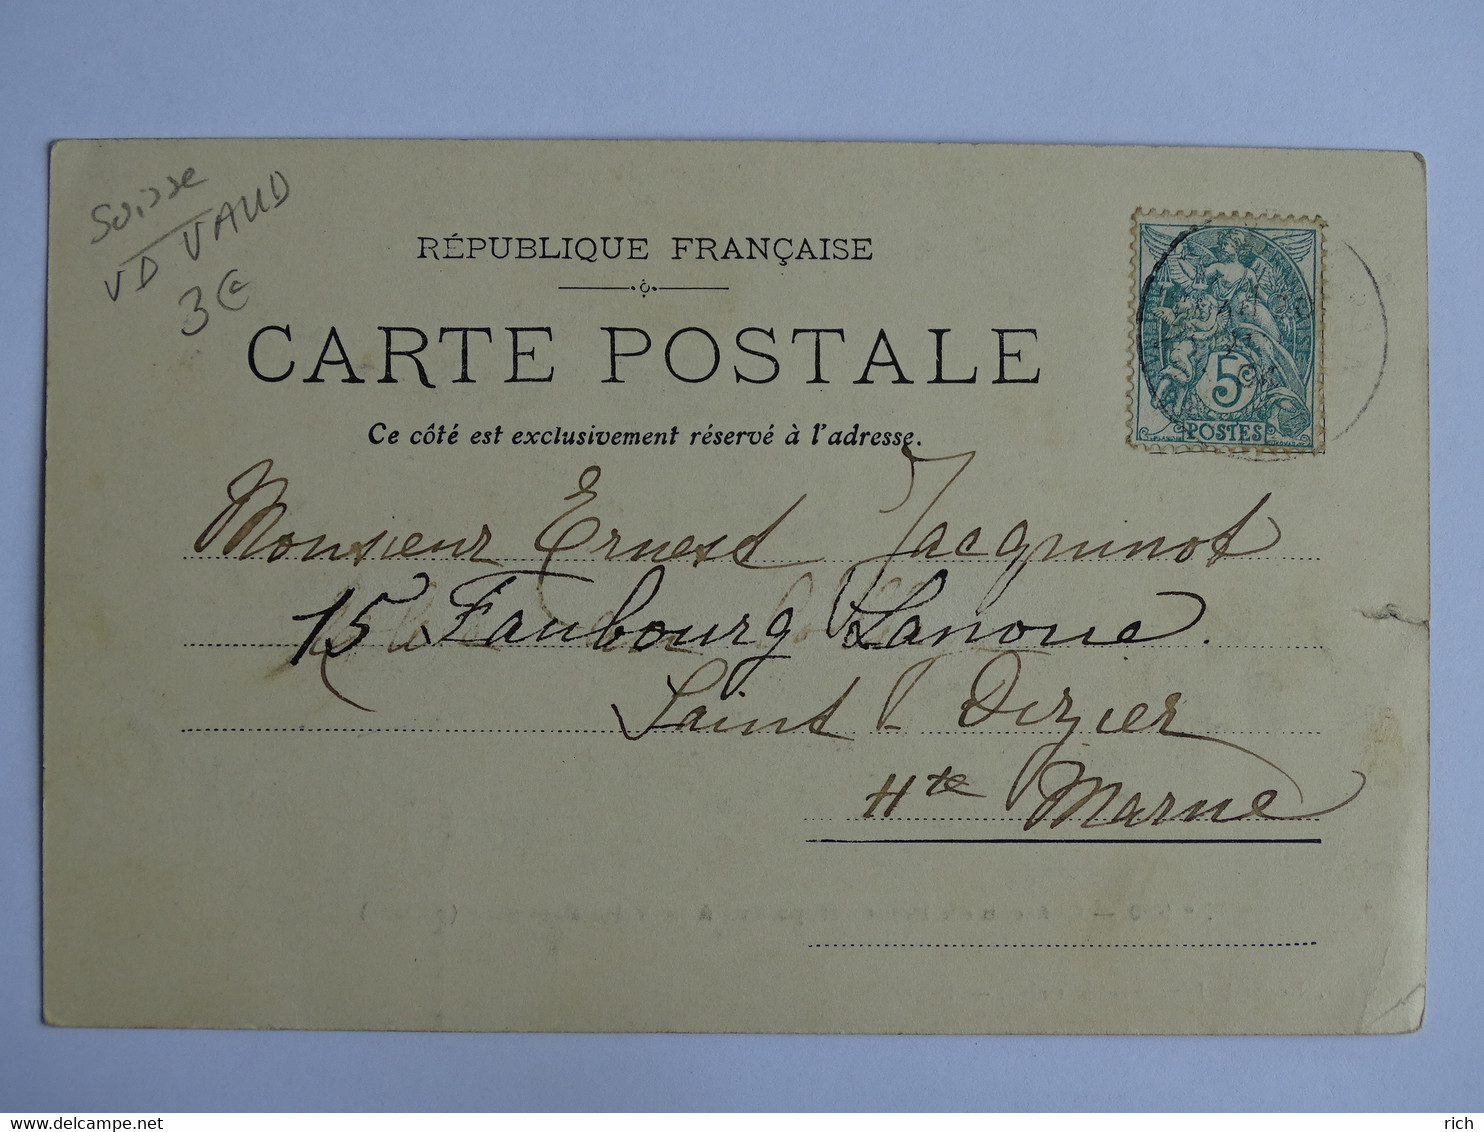 Suisse
VD VAUD
3€
RÉPUBLIQUE FRANÇAISE
CARTE POSTALE
Ce côté est exclusivement réservé à l'adresse.
5
POSTES
Monsieur Ernest Jacquinot
15 Faubourg Lanoue.
Saint-Dizier
Hte Marne
delcampe.net
rich